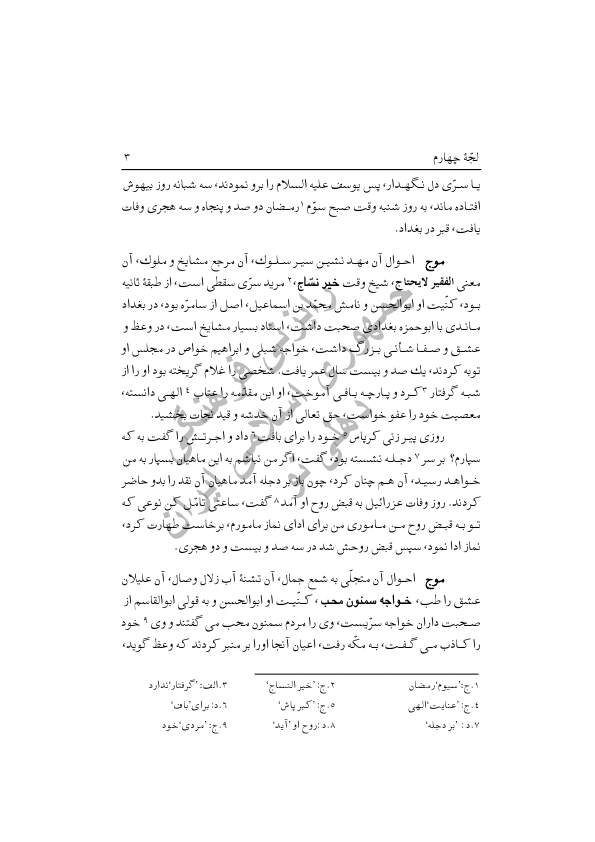 لجّۀ چهارم ۳
یـا سـرّی دل نـگهـدار، پس یوسف علیه السلام را برو نمودند، سه شبانه روز بیهوش
افتـاده ماند، به روز شنبه وقت صبح سوّم ۱ رمـضان دو صد و پنجاه و سه هجری وفات
یافت، قبر در بغداد.
موج احـوال آن مهـد نشیـن سیـر سـلـوك، آن مرجع مشایخ و ملوك، آن
معنی الفقیر لایحتاج، شیخ وقت خیر نسّاج،۲ مرید سرّی سقطی است، از طبقۀ ثانیه
بـود، کنّیت او ابوالحسن و نامش محمّد بن اسماعیل، اصل از سامرّه بود، در بغداد
مانـدی با ابوحمزه بغدادی صحبت داشت، استاد بسیار مشایخ است، در وعظ و
عشـق و صـفـا شـأنـی بـزرگ داشت، خواجه شبلی و ابراهیم خواص در مجلس او
توبه کردند، یك صد و بیست سال عمر یافت. شخصی را غلام گریخته بود او را از
شبـه گرفتار ۳ کـرد و پـارچـه بـافـی آموخت، او این مقدّمه را عتاب ٤ الهـی دانسته،
معصیت خود را عفو خواست، حق تعالی از آن خدشه و قید نجات بخشید.
روزی پیـر زنـی کرپاس ٥ خـود را برای بافت ٦ داد و اجرتـش را گفت به که
سپارم؟ بر سر ۷ دجـلـه نشسته بود، گفت، اگر من نباشم به این ماهیان بسپار به من
خـواهـد رسیـد، آن هـم چنان کرد، چون باز بر دجله آمد ماهیان آن نقد را بدو حاضر
کردند. روز وفات عزرائیل به قبض روح او آمد ۸ گفت، ساعتی تأمّل کن نوعی که
تـو بـه قبـض روح مـن مـاموری من برای ادای نماز مامورم، برخاست طهارت کرد،
نماز ادا نمود، سپس قبض روحش شد در سه صد و بیست و دو هجری.
موج احـوال آن متجلّی به شمع جمال، آن تشنۀ آب زلال وصال، آن علیلان
عشق را طب، خـواجه سمنون محب، کـنّیـت او ابوالحسن و به قولی ابوالقاسم از
صحبت داران خواجه سرّیست، وی را مردم سمنون محب می گفتند و وی ۹ خود
را کـاذب مـی گـفـت، بـه مکّه رفت، اعیان آنجا اورا بر منبر کردند که وعظ گوید،
۱.ج:'سیوم'رمضان ۲.ج: 'خیر النساج' ۳.الف: 'گرفتار'ندارد
٤.ج: 'عنایت'الهی ٥.ج: 'کبر پاش' ٦.د: برای'باف'
۷.د : 'بر دجله' ۸.د :روح او 'آید' ۹.ج: 'مردی'خود
رایزنی فرهنگی
جمهوری اسلامی ایران
دهلی نو